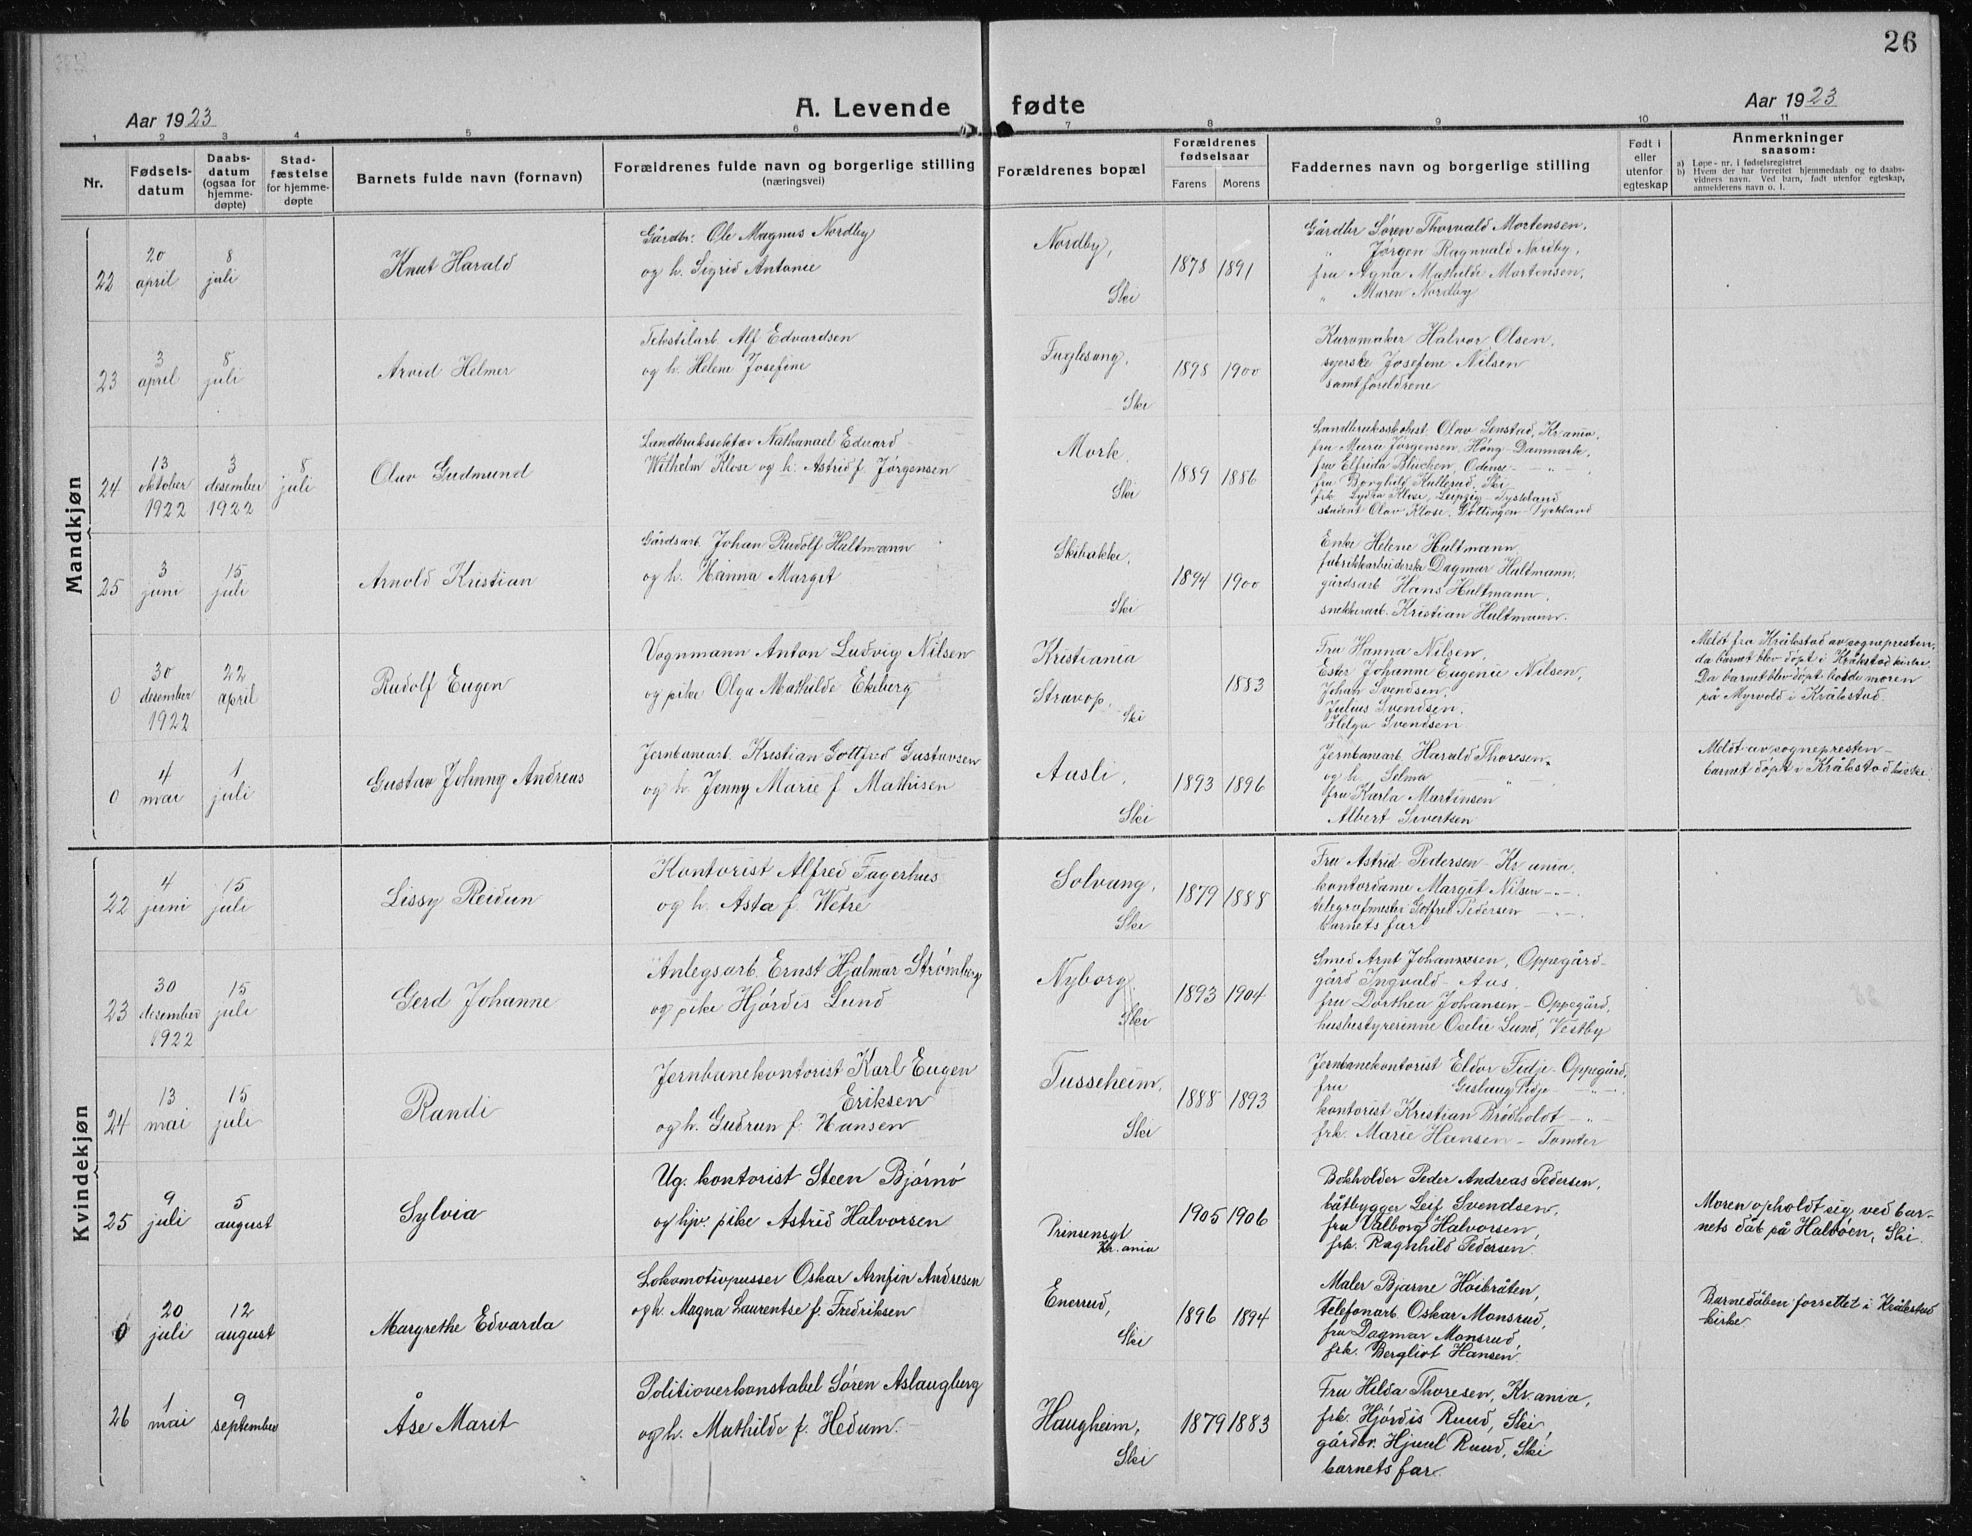 26
Aar 1923
A. Levende fødte
Aar 1923
1 2 3 4 5 6 7 8 9 10 11
Nr.
Fødsels-
datum
Daabs-
datum
(ogsaa for
hjemme-
døpte)
Stad-
fæstelse
for hjemme-
døpte
Barnets fulde navn (fornavn)
Forældrenes fulde navn og borgerlige stilling
(næringsvei)
Forældrenes bopæl
Forældrenes
fødselsaar
Farens Morens
Faddernes navn og borgerlige stilling
Født i
eller
utenfor
egteskap
Anmerkninger
saasom:
a) Løpe-nr. i fødselsregistret
b) Hvem der har forrettet hjemmedaab og to daabs-
vidners navn. Ved barn, født utenfor egteskap,
anmelderens navn o. l.
Mandkjøn
22
20
april
8
juli
Knut Harald
Gårdbr. Ole Magnus Nordby
og h. Sigrid Antonie
Nordby,
Ski
1878 1891
Gårdbr Søren Thorvald Mortensen,
" Jørgen Ragnvald Nordby,
fru Agna Mathilde Mortensen,
" Maren Nordby
23
3
april
8
juli
Arvid Helmer
Tekstilarb. Alf Edvardsen
og h. Helene Josefine
Fuglesang,
Ski
1898 1900
Kurvmaker Halvor Olsen,
syerske Josefine Nilsen
samt foreldrene
24
13
oktober
1922
3
desember
1922
8
juli
Olav Gudmund
Landbrukssekretær Nathanael Eduard
Wilhelm Klose og h. Astrid f. Jørgensen
Mork,
Ski
1889 1886
Landbrukskokist Olav Senstad, Kr.ania,
fru Marie Jørgensen, Höng-Danmark,
fru Elfrida Blücken, Odense - " -
fru Borghild Kullerud, Ski
frk Lydia Klose, Leipzig-Tyskland
student Olav Klose, Göttingen-Tyskland
25
3
juni
15
juli
Arnold Kristian
Gårdsarb. Johan Rudolf Hultmann
og h. Hanna Margit
Skibakke,
Ski
1894 1900
Enke Helene Hultmann
fabrikkarbeiderske Dagmar Hultmann,
gårdsarb Hans Hultmann,
snekkerarb. Kristian Hultmann.
0
30
desember
1922
22
april
Rudolf Eugen
Vognmann Anton Ludvig Nilsen
og pike Olga Mathilde Ekeberg
Kristiania
Stravop,
Ski
1883
Fru Hanna Nilsen,
Ester Johanne Eugenie Nilsen,
Johan Svendsen,
Julius Svendsen,
Helga Svendsen
Meldt fra Kråkstad av sognepresten,
da barnet blev døpt i Kråkstad kirke.
Da barnet blev døpt bodde moren
på Myrvold i Kråkstad.
0
4
mai
1
juli
Gustav Johnny Andreas
Jernbanearb. Kristian Gottfred Gustavsen
og h. Jenny Marie f. Mathisen
Ausli,
Ski
1893 1896
Jernbanearb Harald Thoresen,
og h. Selma "
fru Karla Martinsen
Albert Sivertsen
Meldt av sognepresten -
barnet døpt i Kråkstad kirke.
Kvindekjøn
22
4
juni
15
juli
Lissy Reidun
Kontorist Alfred Fagerhus
og h. Asta f. Wetre
Solvang,
Ski
1879 1888
Fru Astrid Pedersen - Kr.ania,
kontordame Margit Nilsen - " -
telegrafmester Gotfred Pedersen - " -
barnets far
23
30
desember
1922
15
juli
Gerd Johanne
Anlegsarb. Ernst Hjalmar Strømberg
og pike Hjørdis Lund
Nyborg,
Ski
1893 1904
Smed Arnt Johannesen, Oppegård -
gård Ingvald - Aas,
fru Dorthea Johansen - Oppegård,
husbestyrerinne Oselie Lund, Vestby
24
13
mai
15
juli
Randi
Jernbanekontorist Karl Eugen
Eriksen
og h. Gudrun f. Hansen
Tusseheim,
Ski
1888 1893
Jernbanekontorist Eldor Fidje - Oppegård,
fru Gislaug Fidje - " -
kontorist Kristian Brødholdt - " -
frk. Marie Hansen - Tomter
25
9
juli
5
august
Sylvia
Ug. kontorist Steen Bjørnø
og hjv. pike Astrid Halvorsen
Prinsensgt
Kr.ania
1905 1906
Bokholder Peder Andreas Pedersen,
båtbygger Leif Svendsen,
fru Valborg Halvorsen,
frk. Ragnhild Pedersen
Moren opholdt sig ved bar-
nets dåb på Haldøen, Ski.
0
20
juli
12
august
Margrethe Edvarda
Lokomotivpusser Oskar Arnfin Andresen
og h. Magna Laurentse f. Fredriksen
Enerud,
Ski
1896 1894
Maler Bjarne Høibråten,
telefonarb Oskar Monsrud,
fru Dagmar Monsrud,
frk. Bergliot Hansen
Barnedåben forrettet i Kråkstad
kirke
26
1
mai
9
september
Åse Marit
Politioverkonstabel Søren Aslaugberg
og h. Mathilde f. Hedum.
Haugheim,
Ski
1879 1883
Fru Hilda Thoresen, Kr.ania,
frk. Hjørdis Ruud, Ski,
gårdbr. Hjuul Ruud, Ski
barnets far.